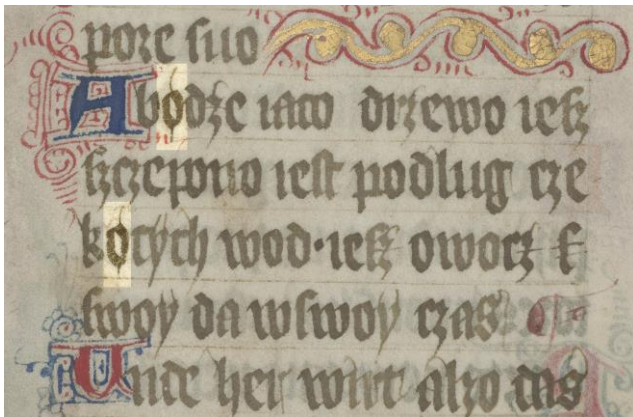 pore ſuo
A bødze iaco drzewo ieſz
ſzczepono ieſt podlug cze
køcych wod·ieſz owocz ſ
ſwoy da wſwoy czas
Unde her wirt alzo das